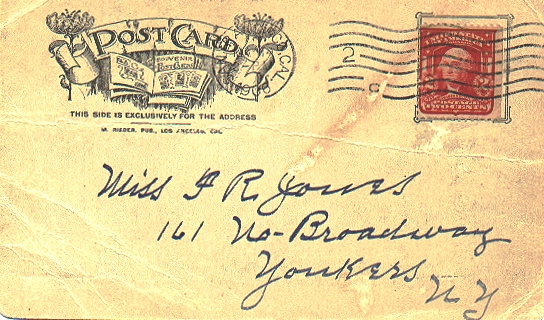 POST CARD
SOUVENIR
POST CARDS
CAL.
2
THIS SIDE IS EXCLUSIVELY FOR THE ADDRESS
M. RIEDER, PUB., LOS ANGELES, CAL.
TWO CENTS
Miss F R. Jones
161 No-Broadway
Yonkers
N Y